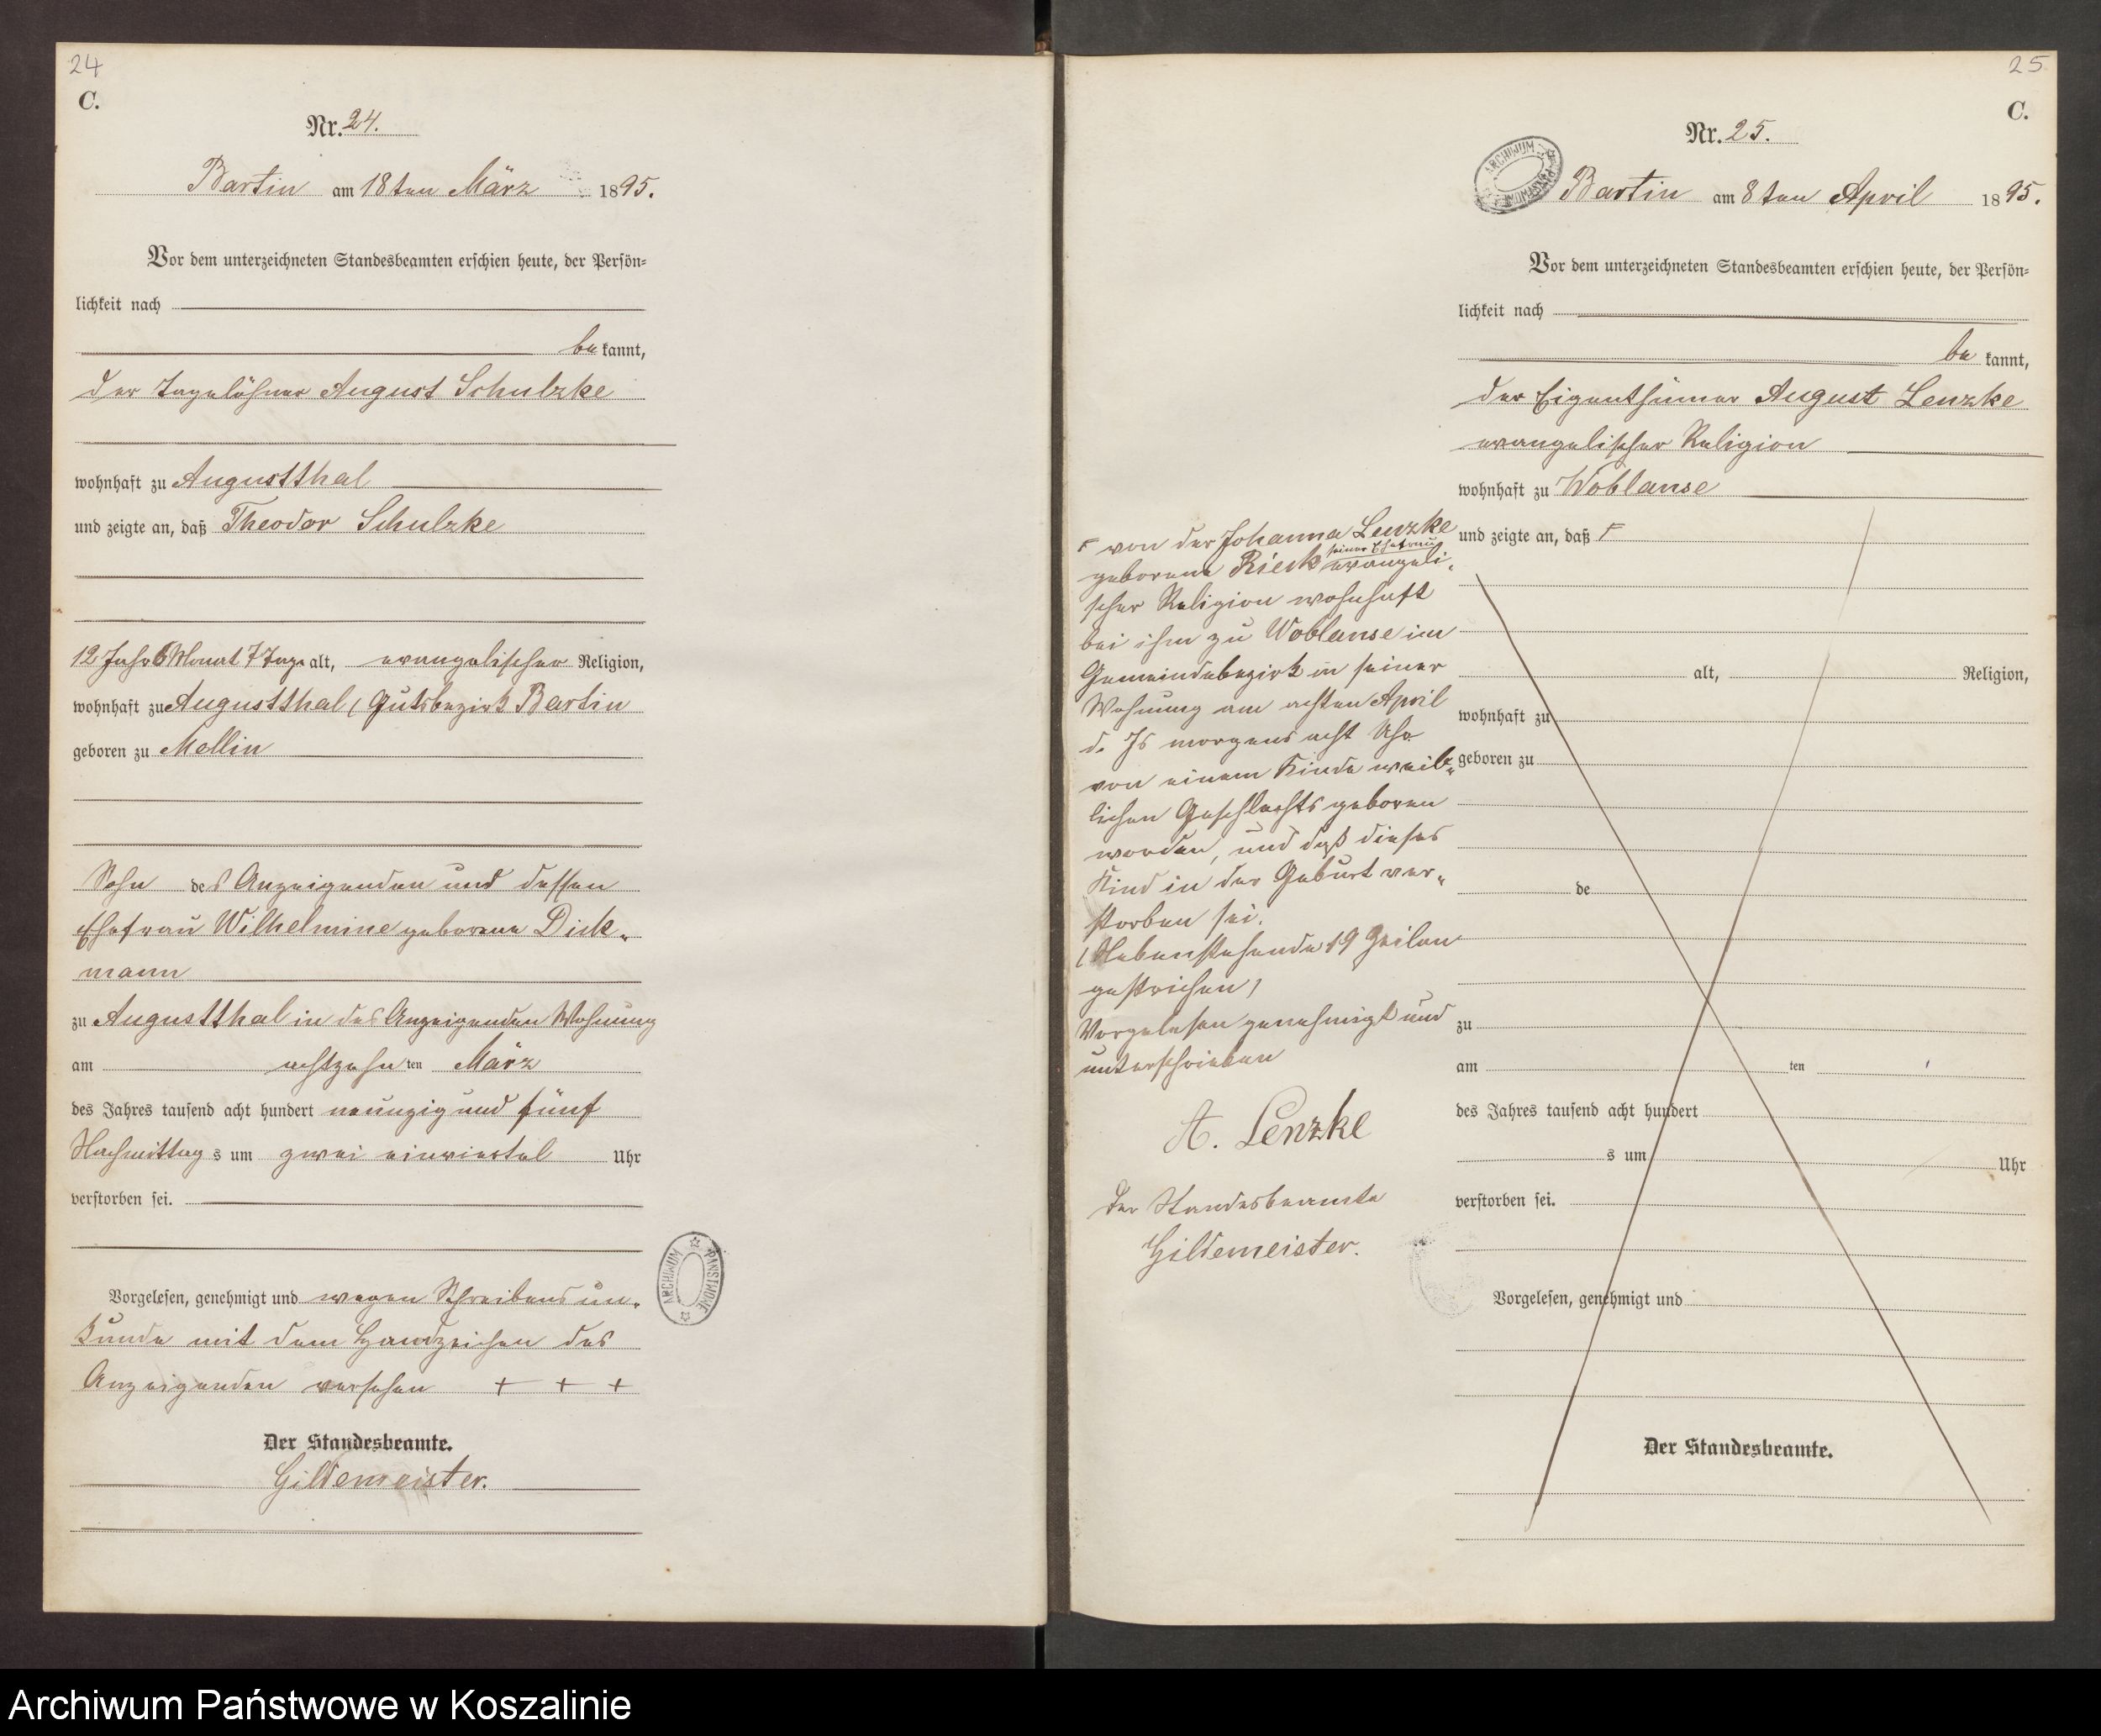 24
C.
Nr. 24.
Bartin am 18ten März 1895.
Vor dem unterzeichneten Standesbeamten erschien heute, der Persön=
lichkeit nach
bekannt,
der Tagelöhner August Schulzke
wohnhaft zu Augustthal
und zeigte an, daß Theodor Schulzke
12 Jahr 6 Monat 7 Tage alt, evangelischer Religion,
wohnhaft zu Augustthal (Gutsbezirk Bartin
geboren zu Mellin
Sohn des Anzeigenden und dessen
Ehefrau Wilhelmine geborene Dick„
mann
zu Augustthal in des Anzeigenden Wohnung
am achtzehnten März
des Jahres tausend acht hundert neunzig und fünf
Nachmittags um zwei einviertel Uhr
verstorben sei.
Vorgelesen, genehmigt und wegen Schreibensun„
kunde mit dem Handzeichen des
Anzeigenden versehen + + +
Der Standesbeamte.
Gildemeister.
ARCHIWUM PAŃSTWOWE
25
C.
Nr. 25.
ARCHIWUM PAŃSTWOWE
Bartin am 8ten April 1895.
Vor dem unterzeichneten Standesbeamten erschien heute, der Persön=
lichkeit nach
bekannt,
der Eigenthümer August Lenzke
evangelischer Religion
wohnhaft zu Woblanse
und zeigte an, daß F
F von der Johanna Lenzke
geborene Rieck seiner Ehefrau evangeli„
scher Religion wohnhaft
bei ihm zu Woblanse im
Gemeindebezirk in seiner
Wohnung am achten April
d. Js morgens acht Uhr
von einem Kinde weib„
lichen Geschlechts geboren
worden, und daß dieses
Kind in der Geburt ver„
storben sei.
(Nebenstehende 19 Zeilen
gestrichen)
Vorgelesen genehmigt und
unterschrieben
A. Lenzke
Der Standesbeamte
Gildemeister.
alt, Religion,
wohnhaft zu
geboren zu
de
zu
am ten
des Jahres tausend acht hundert
s um Uhr
verstorben sei.
Vorgelesen, genehmigt und
Der Standesbeamte.
Archiwum Państwowe w Koszalinie